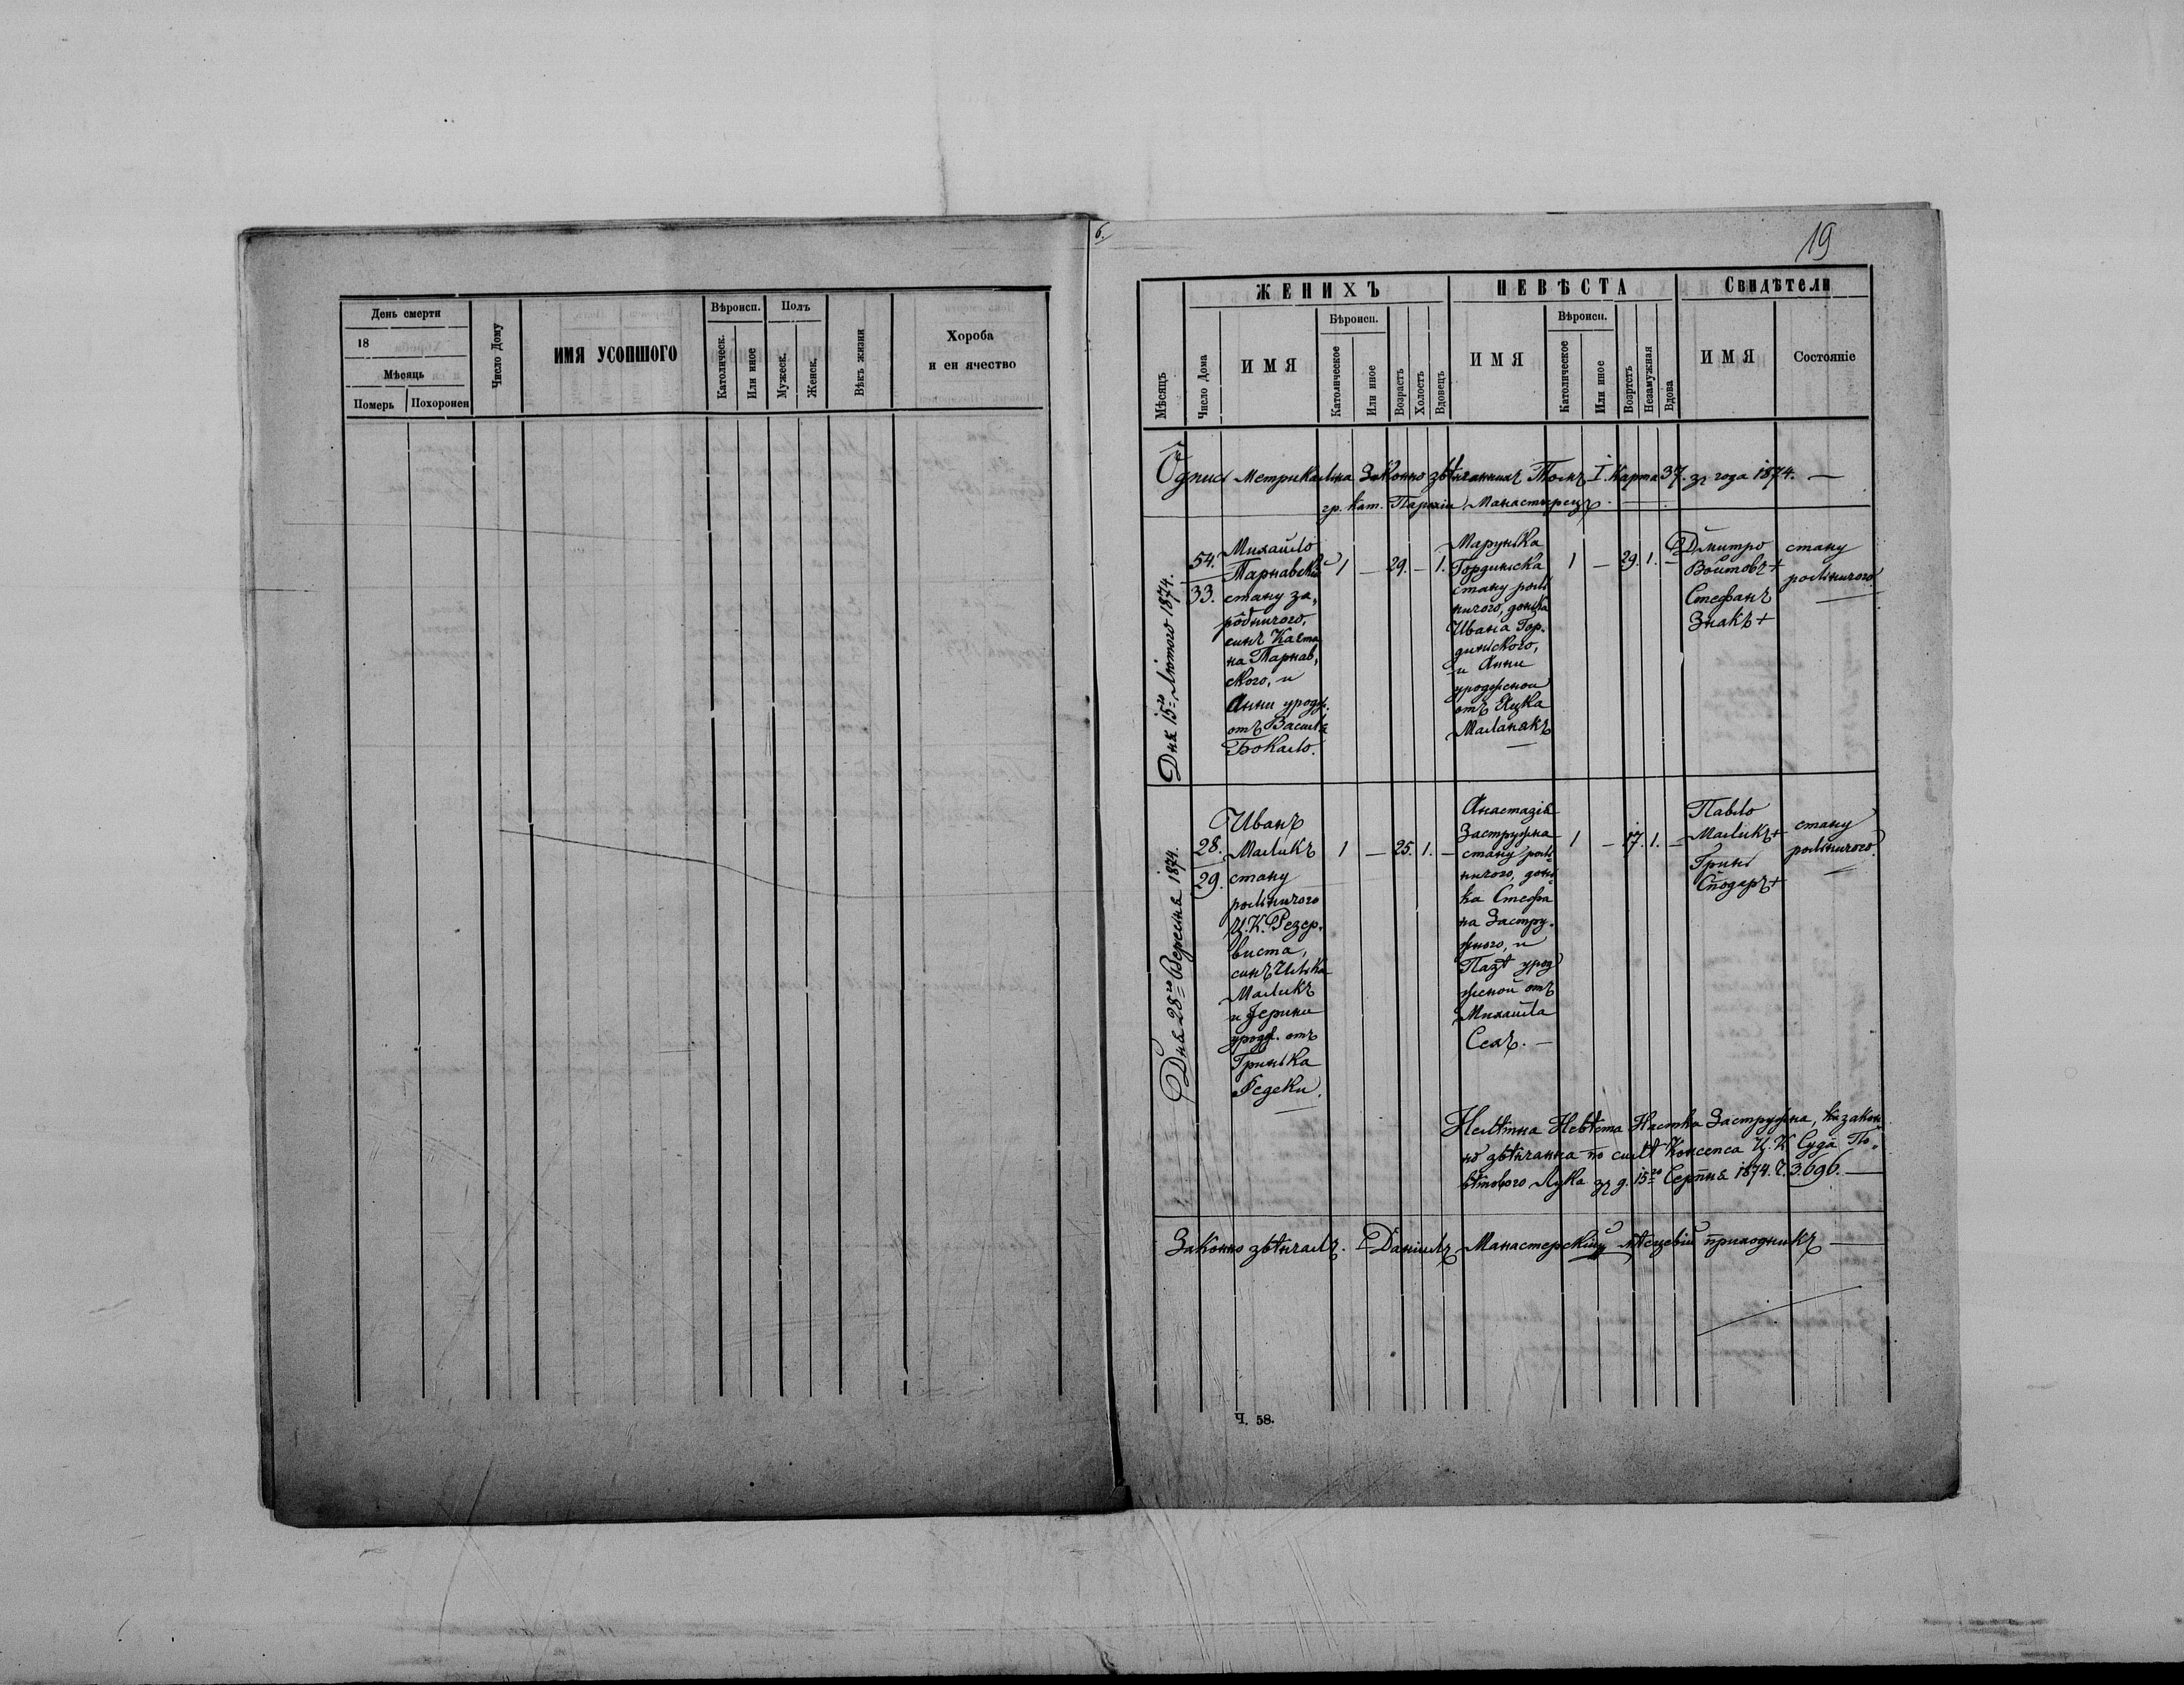 День смерти
18
Мѣсяць
Померъ
Похоронен
Число Дому
ИМЯ УСОПШОГО
Вѣроисп.
Католическ.
Или иное
Полъ
Мужеск.
Женск.
Вѣкъ жизни
Хороба
и еи ячество
6.
19
Мѣсяцъ
ЖЕНИХЪ
Число Дома
ИМЯ
Вѣроисп.
Католическое
Или иное
Возрастъ
Холостъ
Вдовецъ
НЕВѢСТА
ИМЯ
Вѣроисп.
Католическое
Или иное
Возрстъ
Незамужная
Вдова
Свидѣтели
ИМЯ
Состояніе
Однись Метрикальна Законно звѣнчанныхъ Томъ I. Карта 37. зъ года 1874. —
гр. кат. Парохіи Манастирецъ
Дня 15го Лютого 1874.
54.
33.
Михайло
Тарнавскій
стану за„
родничого,
синъ Каєта
на Тарнав„
ского, и
Анни уродж.
отъ Василя
Бокало.
1 — 29. — 1.
Марунька
Гординьска
стану роль
ничого, донька
Ивана Гор„
диньского,
и Анни
урожденои
отъ Яцка
Маланякъ
—
1 — 29. 1. —
Дмитро
Войтовъ +
Стефанъ
Знакъ +
стану
рольничого
Дня 28го Вересня 1874.
28.
29.
Иванъ
Маликъ
стану
рольничого
Ц. К. Резер„
виста,
синъ Илька
Маликъ
и Єрини
уродж. отъ
Гринька
Федеки.
1 — 25. 1. —
Анастазія
Застружна
стану роль
ничого, донь
ка Стефа
на Застру„
жного, и
Пазѣ урод
женой отъ
Михайла
Сенъ. —
1 — 17. 1. —
Павло
Маликъ +
Гринь
Сподаръ +
стану
рольничого
Нелѣтна Невѣста Настка Застружна, законь
но звѣнчанна по силѣ Консенса Ц. К. Суда По„
вѣтового Лука зъ д. 15го Серпня 1874. Ч. 3.696. —
Законно звѣнчалъ. Даніилъ Манастерскій мѣсцевій приходникъ —
Ч. 58.